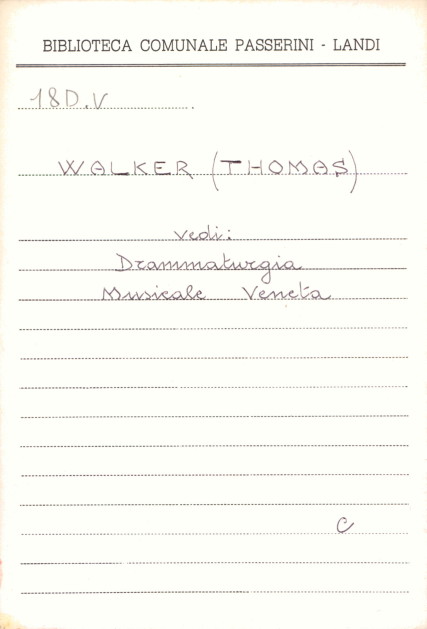 BIBLIOTECA COMUNALE PASSERINI - LANDI
18D.V
WALKER (THOMAS)
vedi:
Drammaturgia
Musicale Veneta
C